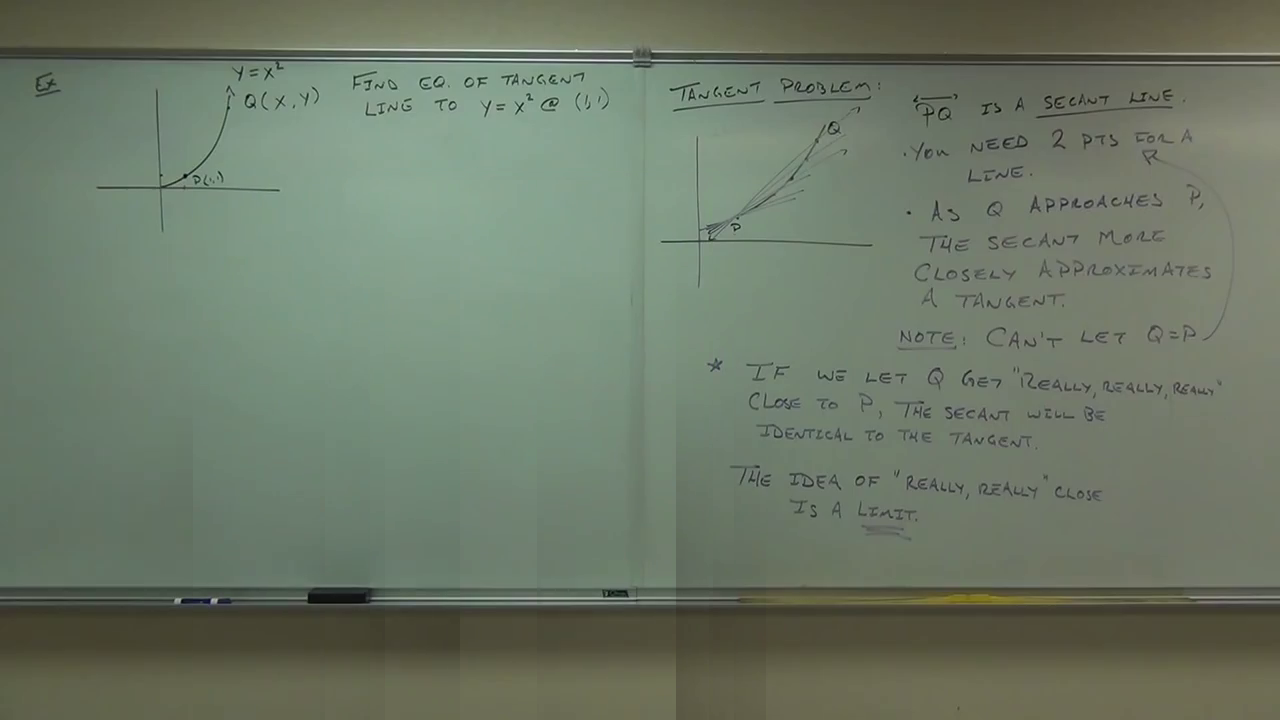 Ex
Y = X²
Q(X, Y)
P(1,1)
FIND EQ. OF TANGENT
LINE TO Y = X² @ (1,1)
TANGENT PROBLEM:
Q
P
PQ IS A SECANT LINE.
• YOU NEED 2 PTS FOR A
LINE.
• AS Q APPROACHES P,
THE SECANT MORE
CLOSELY APPROXIMATES
A TANGENT.
NOTE: CAN'T LET Q=P
* IF WE LET Q GET "REALLY, REALLY, REALLY"
CLOSE TO P, THE SECANT WILL BE
IDENTICAL TO THE TANGENT.
THE IDEA OF "REALLY, REALLY" CLOSE
IS A LIMIT.